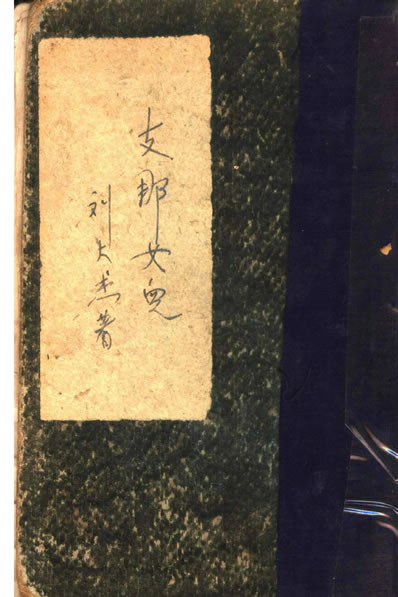 支那女兒
刘大杰著